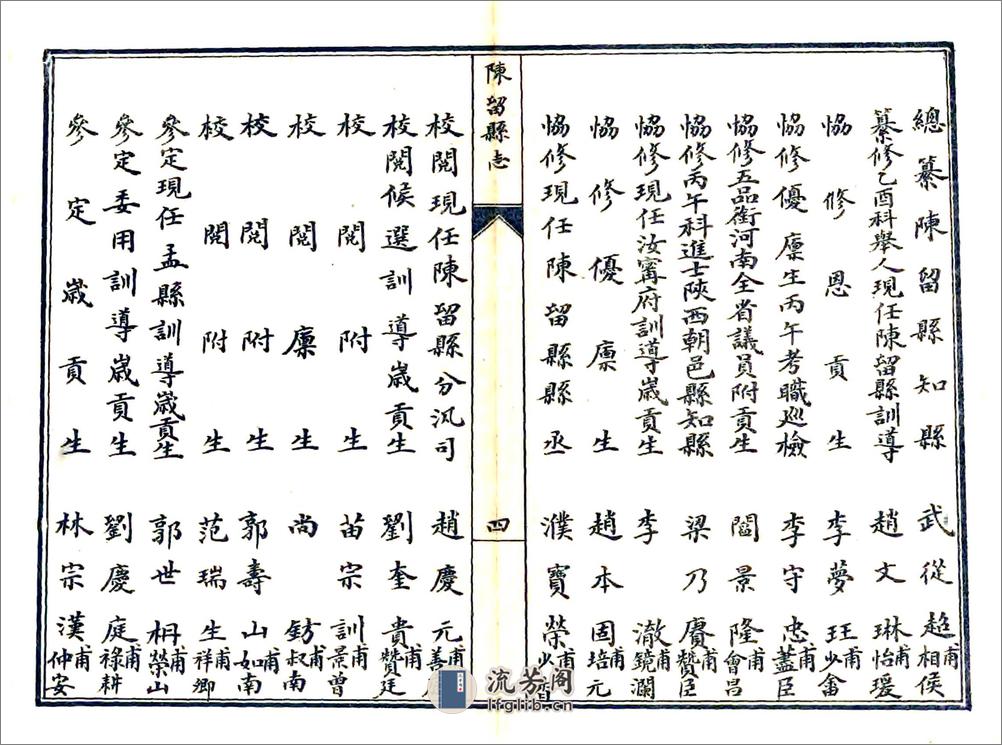 總纂陳留縣知縣 武從超相侯甫
纂修乙酉科舉人現任陳留縣訓導 趙文琳怡瑗甫
恊修恩貢生 李夢玨少畬甫
恊修優廩生丙午考職巡檢 李守忠藎臣甫
恊修五品銜河南全省議員附貢生 閻景隆會昌甫
恊修丙午科進士陝西朝邑縣知縣 梁乃賡贊臣甫
恊修現任汝甯府訓導歲貢生 李澈鏡瀾甫
恊修優廩生 趙本固培元甫
恊修現任陳留縣縣丞 濮寶榮少甫
陳留縣志
四
校閱現任陳留縣分汛司 趙慶元善甫
校閱候選訓導歲貢生 劉奎貴贊廷甫
校閱附生 苗宗訓景曾甫
校閱廩生 尚鈁叔南甫
校閱附生 郭壽山如南甫
校閱附生 范瑞生祥卿甫
參定現任孟縣訓導歲貢生 郭世枬榮山甫
參定委用訓導歲貢生 劉慶庭祿耕甫
參定歲貢生 林宗漢仲安甫
流芳阁
lfglib.cn